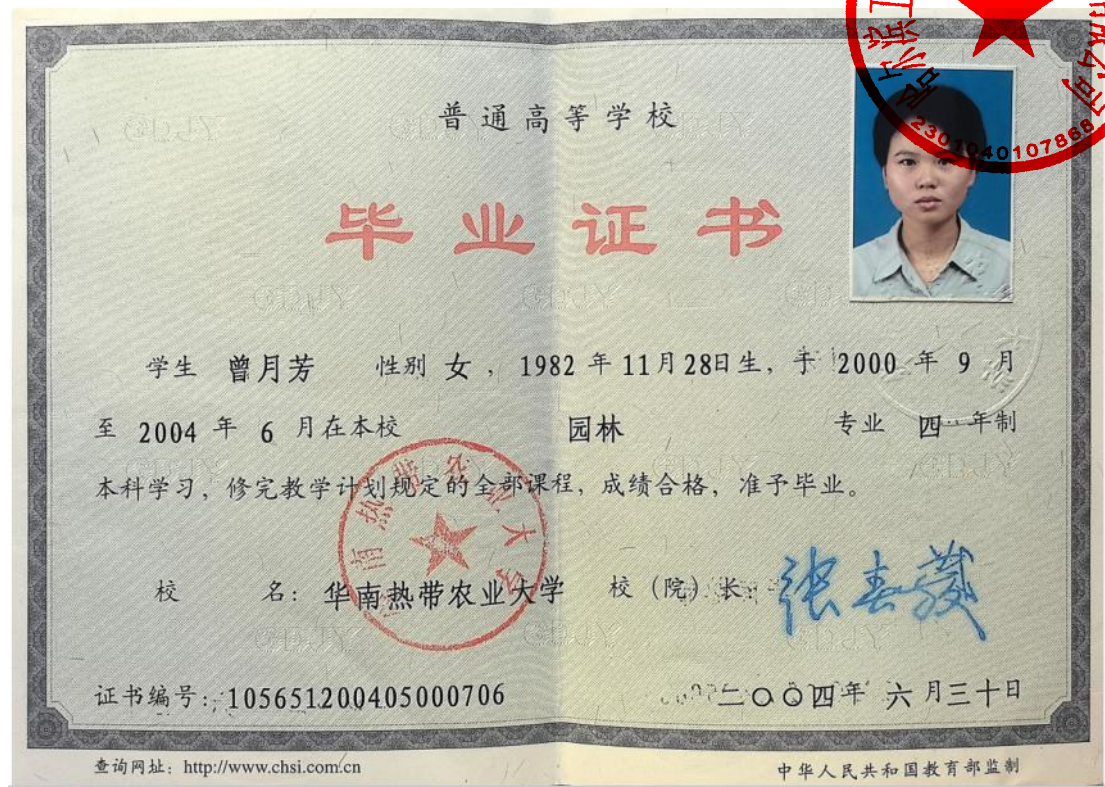 普通高等学校
毕业证书
学生 曾月芳 性别 女 ，1982 年 11 月 28 日生，于 2000 年 9 月
至 2004 年 6 月在本校 园林 专业 四 年制
本科学习，修完教学计划规定的全部课程，成绩合格，准予毕业。
校 名：华南热带农业大学 校（院）长：
华南热带农业大学
证书编号：105651200405000706 二〇〇四年 六 月三十日
查询网址：http://www.chsi.com.cn 中华人民共和国教育部监制
2301040107868